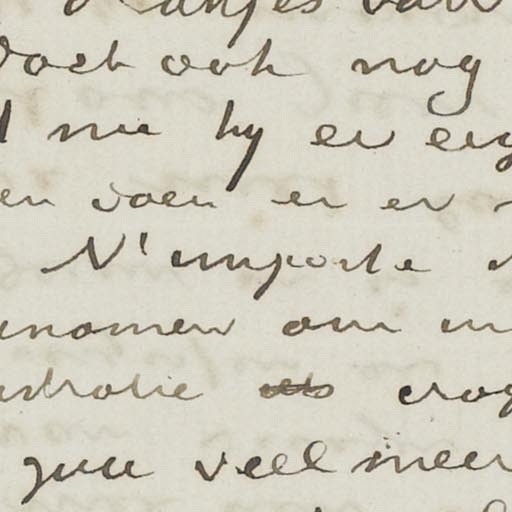 doch ook nog
nu hy er erg
en doen er er
N'importe
nomen om in
stratie als crog
zull veel meer